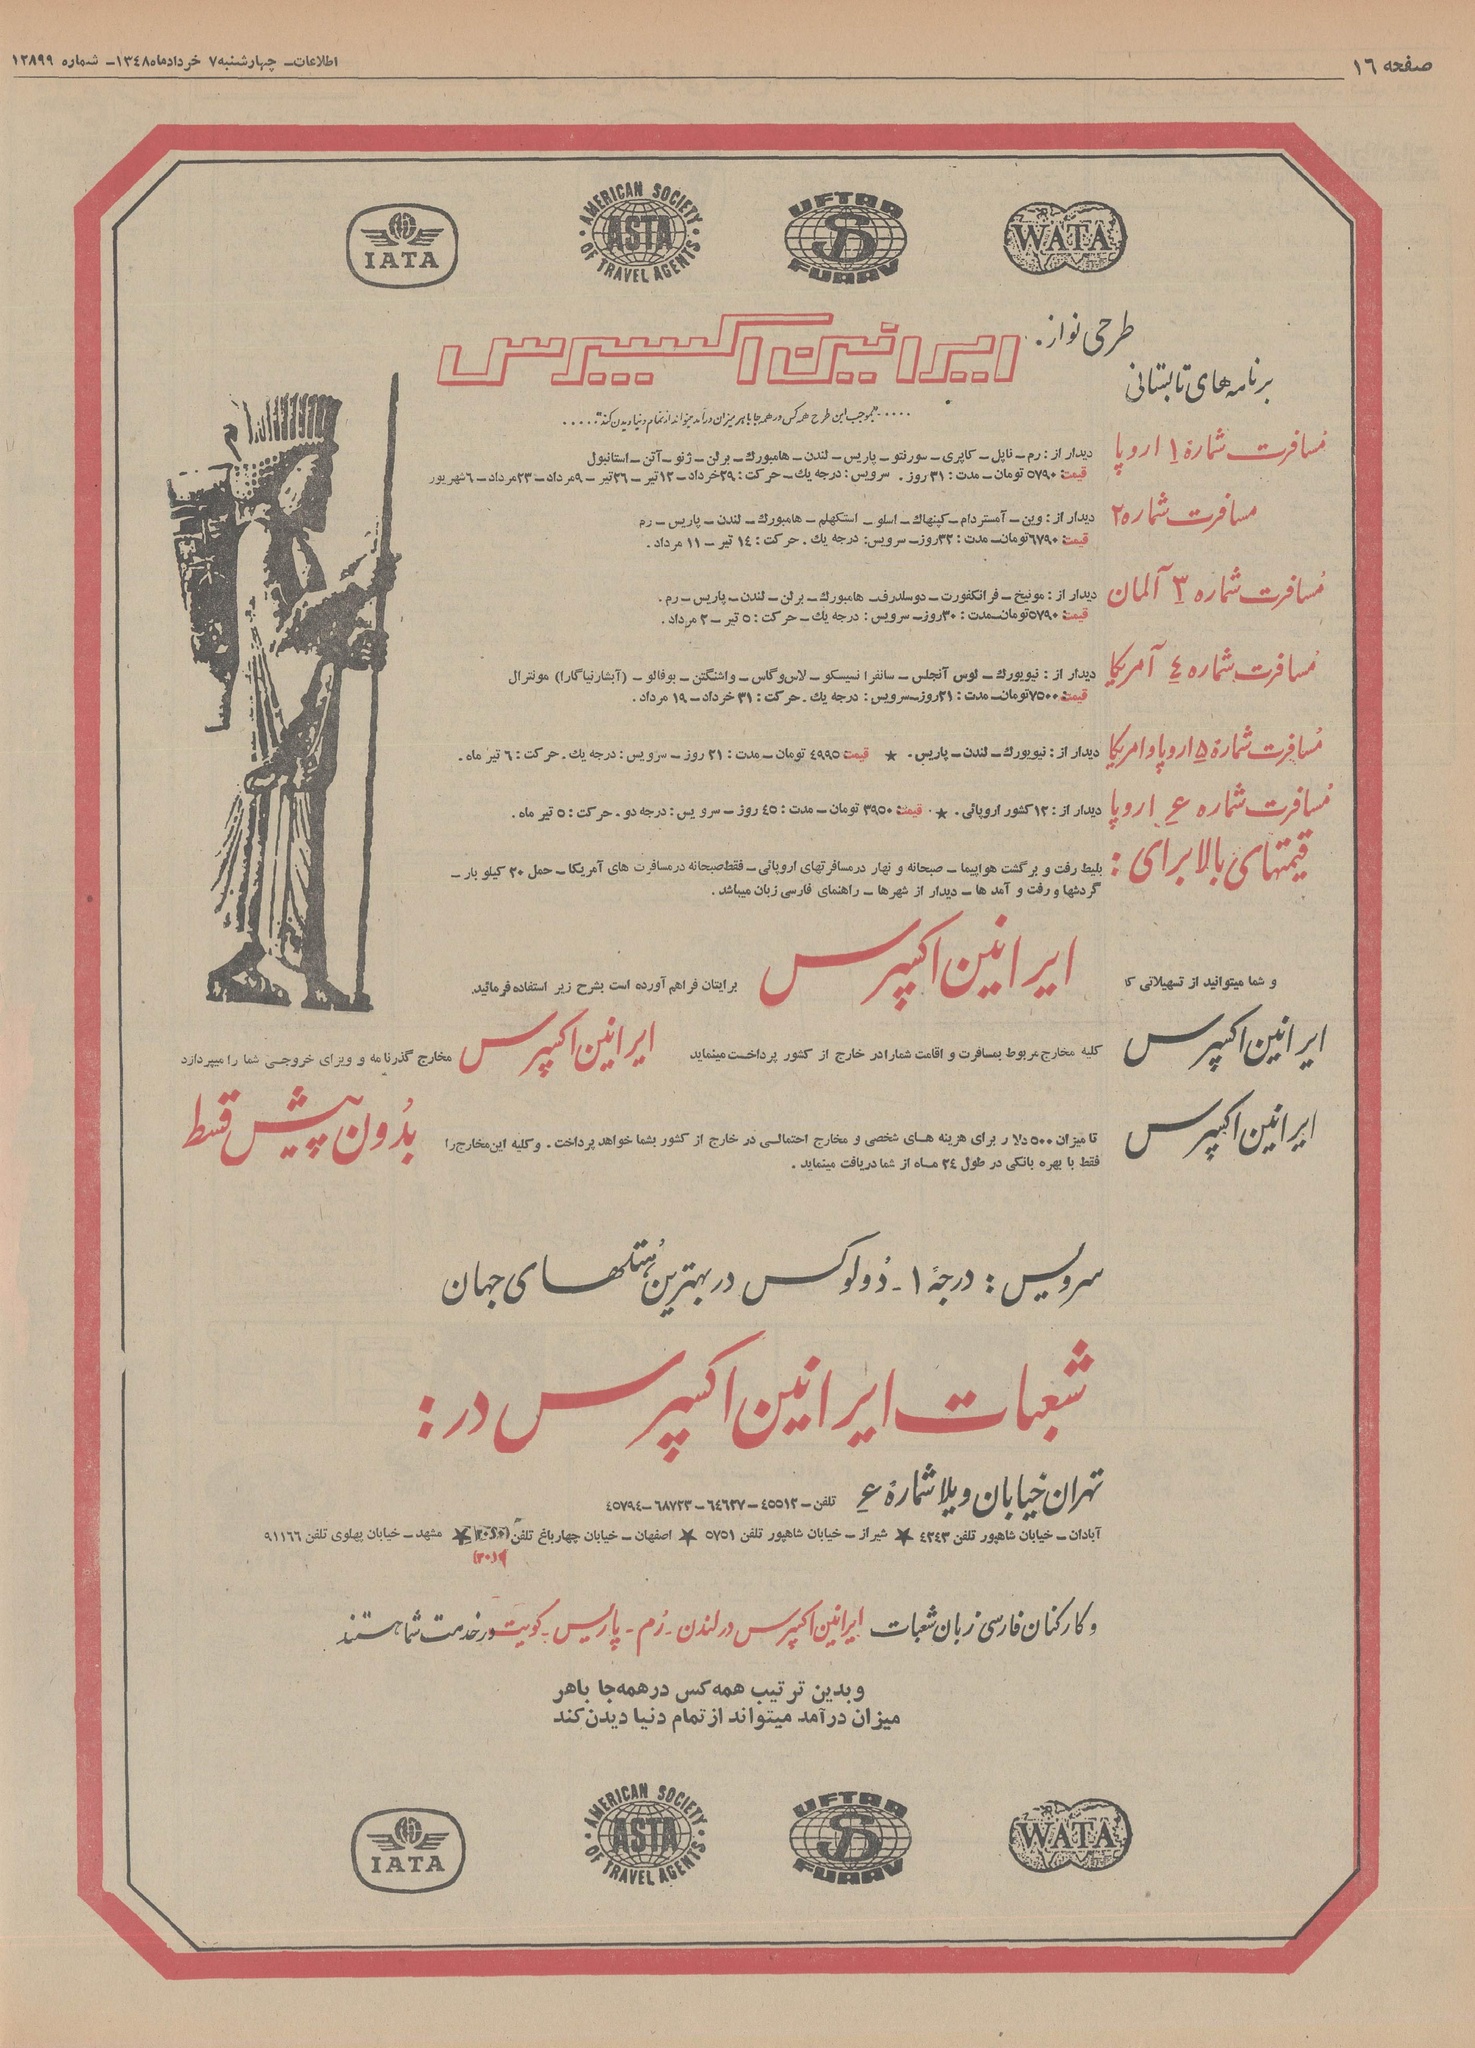 صفحه ۱٦
اطلاعات ـ چهارشنبه ۷ خردادماه ۱۳٤۸ ـ شماره ۱۲۸۹۹
IATA
AMERICAN SOCIETY OF TRAVEL AGENTS
ASTA
UFTAA
FUAAV
WATA
طرحی نو از . ایرانین اکسپرس
برنامه های تابستانی
.....«بموجب این طرح همه کس در همه جا با هر میزان درآمد میتواند از تمام دنیا دیدن کند».....
مسافرت شماره ۱ اروپا
دیدار از : رم ـ ناپل ـ کاپری ـ سورنتو ـ پاریس ـ لندن ـ هامبورك ـ برلن ـ ژنو ـ آتن ـ استانبول
قیمت: ۵۷۹۰ تومان ـ مدت : ۳۱ روز . سرویس : درجه یك ـ حرکت : ۲۹خرداد ـ ۱۲تیر ـ ۲٦تیر ـ ۹مرداد ـ ۲۳مرداد ـ ٦شهریور
مسافرت شماره ۲
دیدار از : وین ـ آمستردام ـ کپنهاك ـ اسلو ـ استکهلم ـ هامبورك ـ لندن ـ پاریس ـ رم
قیمت: ٦۷۹۰تومان ـ مدت : ۳۲روز ـ سرویس: درجه یك . حرکت : ۱٤ تیر ـ ۱۱ مرداد .
مسافرت شماره ۳ آلمان
دیدار از : مونیخ ـ فرانکفورت ـ دوسلدرف ـ هامبورك ـ برلن ـ لندن ـ پاریس ـ رم .
قیمت: ۵۷۹۰تومان ـ مدت : ۳۰روز ـ سرویس : درجه یك ـ حرکت : ۵ تیر ـ ۲ مرداد .
مسافرت شماره ٤ آمریکا
دیدار از : نیویورك ـ لوس آنجلس ـ سانفرانسیسکو ـ لاس‌وگاس ـ واشنگتن ـ بوفالو ـ (آبشارنیاگارا) مونترال
قیمت: ۷۵۰۰تومان ـ مدت : ۲۱روز ـ سرویس : درجه یك . حرکت : ۳۱ خرداد ـ ۱۹ مرداد .
مسافرت شماره ۵ اروپا و امریکا
دیدار از : نیویورك ـ لندن ـ پاریس . ★ قیمت: ٤۹۹۵ تومان ـ مدت : ۲۱ روز ـ سرویس : درجه یك . حرکت : ٦ تیر ماه .
مسافرت شماره ۶ اروپا
دیدار از : ۱۲ کشور اروپائی . ★ قیمت: ۳۹۵۰ تومان ـ مدت : ٤۵ روز ـ سرویس : درجه دو . حرکت : ۵ تیر ماه .
قیمتهای بالا برای :
بلیط رفت و برگشت هواپیما ـ صبحانه و نهار در مسافرتهای اروپائی ـ فقط صبحانه در مسافرت های آمریکا ـ حمل ۲۰ کیلو بار ـ
گردشها و رفت و آمد ها ـ دیدار از شهرها ـ راهنمای فارسی زبان میباشد .
و شما میتوانید از تسهیلاتی که ایرانین اکسپرس برایتان فراهم آورده است بشرح زیر استفاده فرمائید
ایرانین اکسپرس کلیه مخارج مربوط بمسافرت و اقامت شما را در خارج از کشور پرداخت مینماید ایرانین اکسپرس مخارج گذرنامه و ویزای خروجی شما را میپردازد
ایرانین اکسپرس تا میزان ۵۰۰ دلار برای هزینه های شخصی و مخارج احتمالی در خارج از کشور بشما خواهد پرداخت . وکلیه این مخارج را بدون پیش قسط
فقط با بهره بانکی در طول ۲٤ ماه از شما دریافت مینماید .
سرویس : درجهٔ ۱ ـ دولوکس در بهترین هتلهای جهان
شعبات ایرانین اکسپرس در :
تهران خیابان ویلا شمارهٔ ۶ تلفن ـ ٤۵۵۱۲ ـ ٦٤٦۲۷ ـ ٦۸۷۲۳ ـ ٤۵۷۹٤
آبادان ـ خیابان شاهپور تلفن ٤۲٤۳ ★ شیراز ـ خیابان شاهپور تلفن ۵۷۵۱ ★ اصفهان ـ خیابان چهارباغ تلفن ★ مشهد ـ خیابان پهلوی تلفن ۹۱۱٦٦
و کارکنان فارسی زبان شعبات ایرانین اکسپرس در لندن ـ رم ـ پاریس ـ کویت در خدمت شما هستند
و بدین ترتیب همه کس در همه جا با هر
میزان درآمد میتواند از تمام دنیا دیدن کند
IATA
AMERICAN SOCIETY OF TRAVEL AGENTS
ASTA
UFTAA
FUAAV
WATA